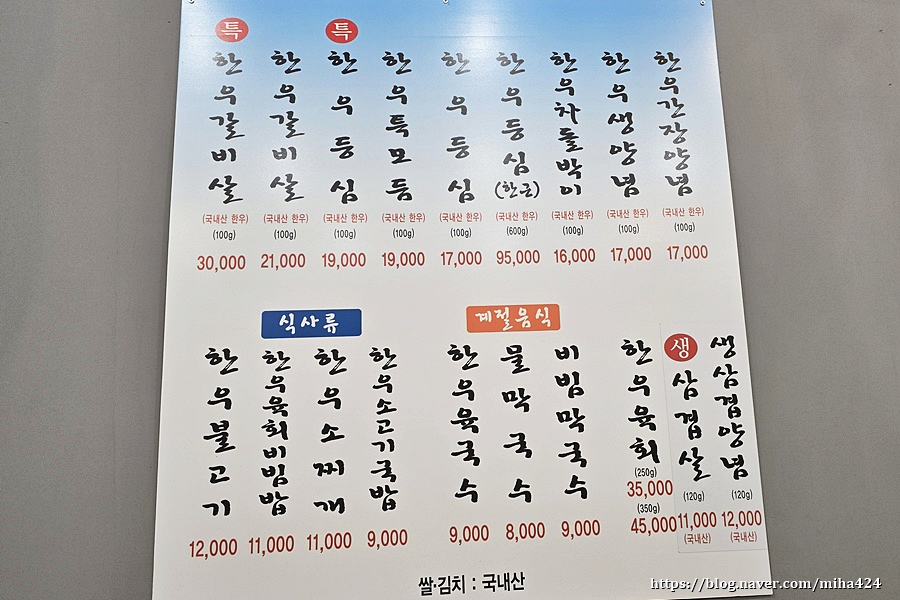 특 한우갈비살
(국내산 한우)
(100g)
30,000
한우갈비살
(국내산 한우)
(100g)
21,000
특 한우등심
(국내산 한우)
(100g)
19,000
한우특모듬
(국내산 한우)
(100g)
19,000
한우등심
(국내산 한우)
(100g)
17,000
한우등심(한근)
(국내산 한우)
(600g)
95,000
한우차돌박이
(국내산 한우)
(100g)
16,000
한우생양념
(국내산 한우)
(100g)
17,000
한우간장양념
(국내산 한우)
(100g)
17,000
식사류
한우불고기
12,000
한우육회비빔밥
11,000
한우소찌개
11,000
한우소고기국밥
9,000
계절음식
한우육국수
9,000
물막국수
8,000
비빔막국수
9,000
한우육회
(250g)
35,000
(350g)
45,000
생 삼겹살
(120g)
11,000
(국내산)
생삼겹양념
(120g)
12,000
(국내산)
쌀·김치 : 국내산
https://blog.naver.com/miha424